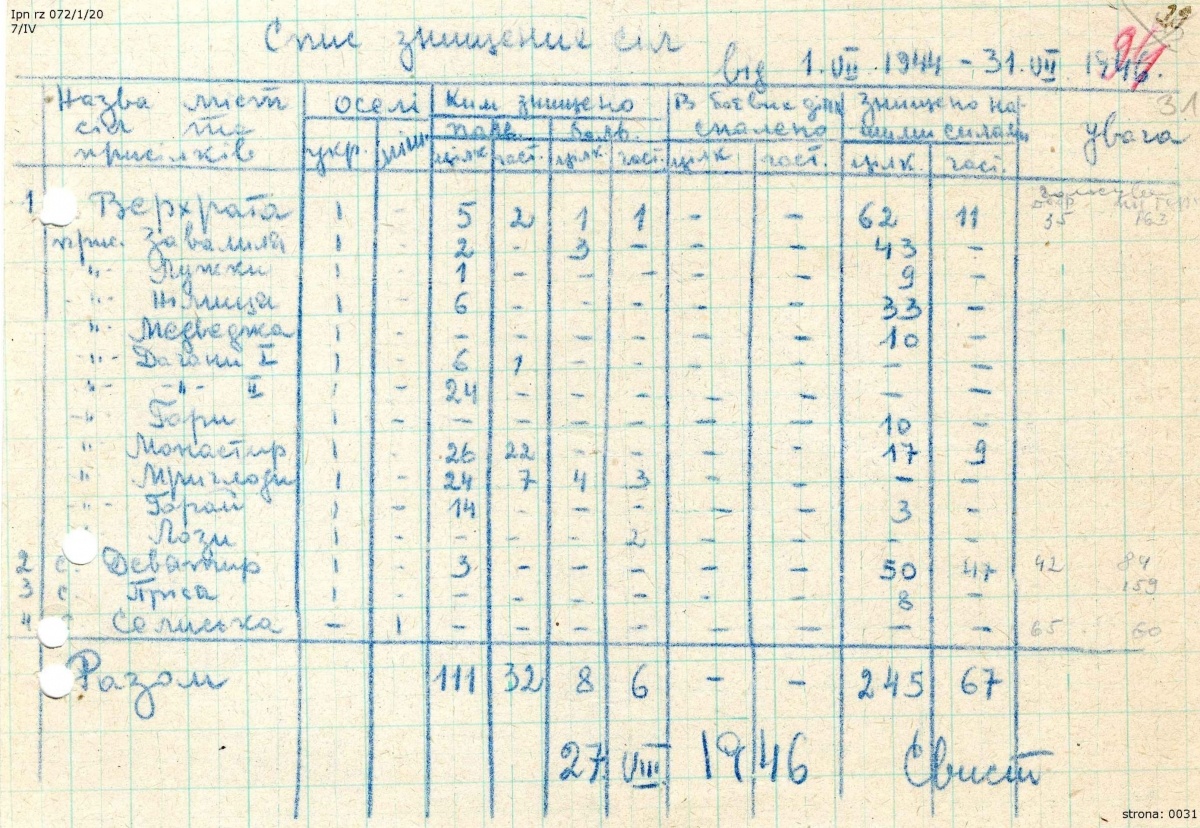 Ipn rz 072/1/20
7/IV
29
91
31
Спис знищення сіл
від 1.VII 1944 - 31.VII 1946.
Назва міст сіл та присілків | оселі | Ким знищено | В боєвих діях спалено | Знищено нашими силами | увага
укр. | міш. | поль. | больш.
цілк. | част. | цілк. | част. | цілк. | част. | цілк. | част.
1 Верхрата | 1 | - | 5 | 2 | 1 | 1 | - | - | 62 | 11 | 35 163
прис. Завалила | 1 | - | 2 | - | 3 | - | - | - | 43 | -
-"- Лужки | 1 | - | 1 | - | - | - | - | - | 9 | -
-"- Нямица | 1 | - | 6 | - | - | - | - | - | 33 | -
-"- Медведжа | 1 | - | - | - | - | - | - | - | 10 | -
-"- Дагани I | 1 | - | 6 | 1 | - | - | - | - | - | -
-"- -"- II | 1 | - | 24 | - | - | - | - | - | - | -
-"- Гори | 1 | - | - | - | - | - | - | - | 10 | -
" Монастир | 1 | - | 26 | 22 | - | - | - | - | 17 | 9
" Мриглоди | 1 | - | 24 | 7 | 4 | 3 | - | - | - | -
-"- Горай | 1 | - | 14 | - | - | - | - | - | 3 | -
Лози | 1 | - | - | - | - | 2 | - | - | - | -
2 с. Девятир | 1 | - | 3 | - | - | - | - | - | 50 | 47 | 42 84
3 с. Пріса | 1 | - | - | - | - | - | - | - | 8 | - | 159
4 Селиська | - | 1 | - | - | - | - | - | - | - | - | 65 60
Разом | 111 | 32 | 8 | 6 | - | - | 245 | 67
27.VIII. 1946 Свист
strona: 0031